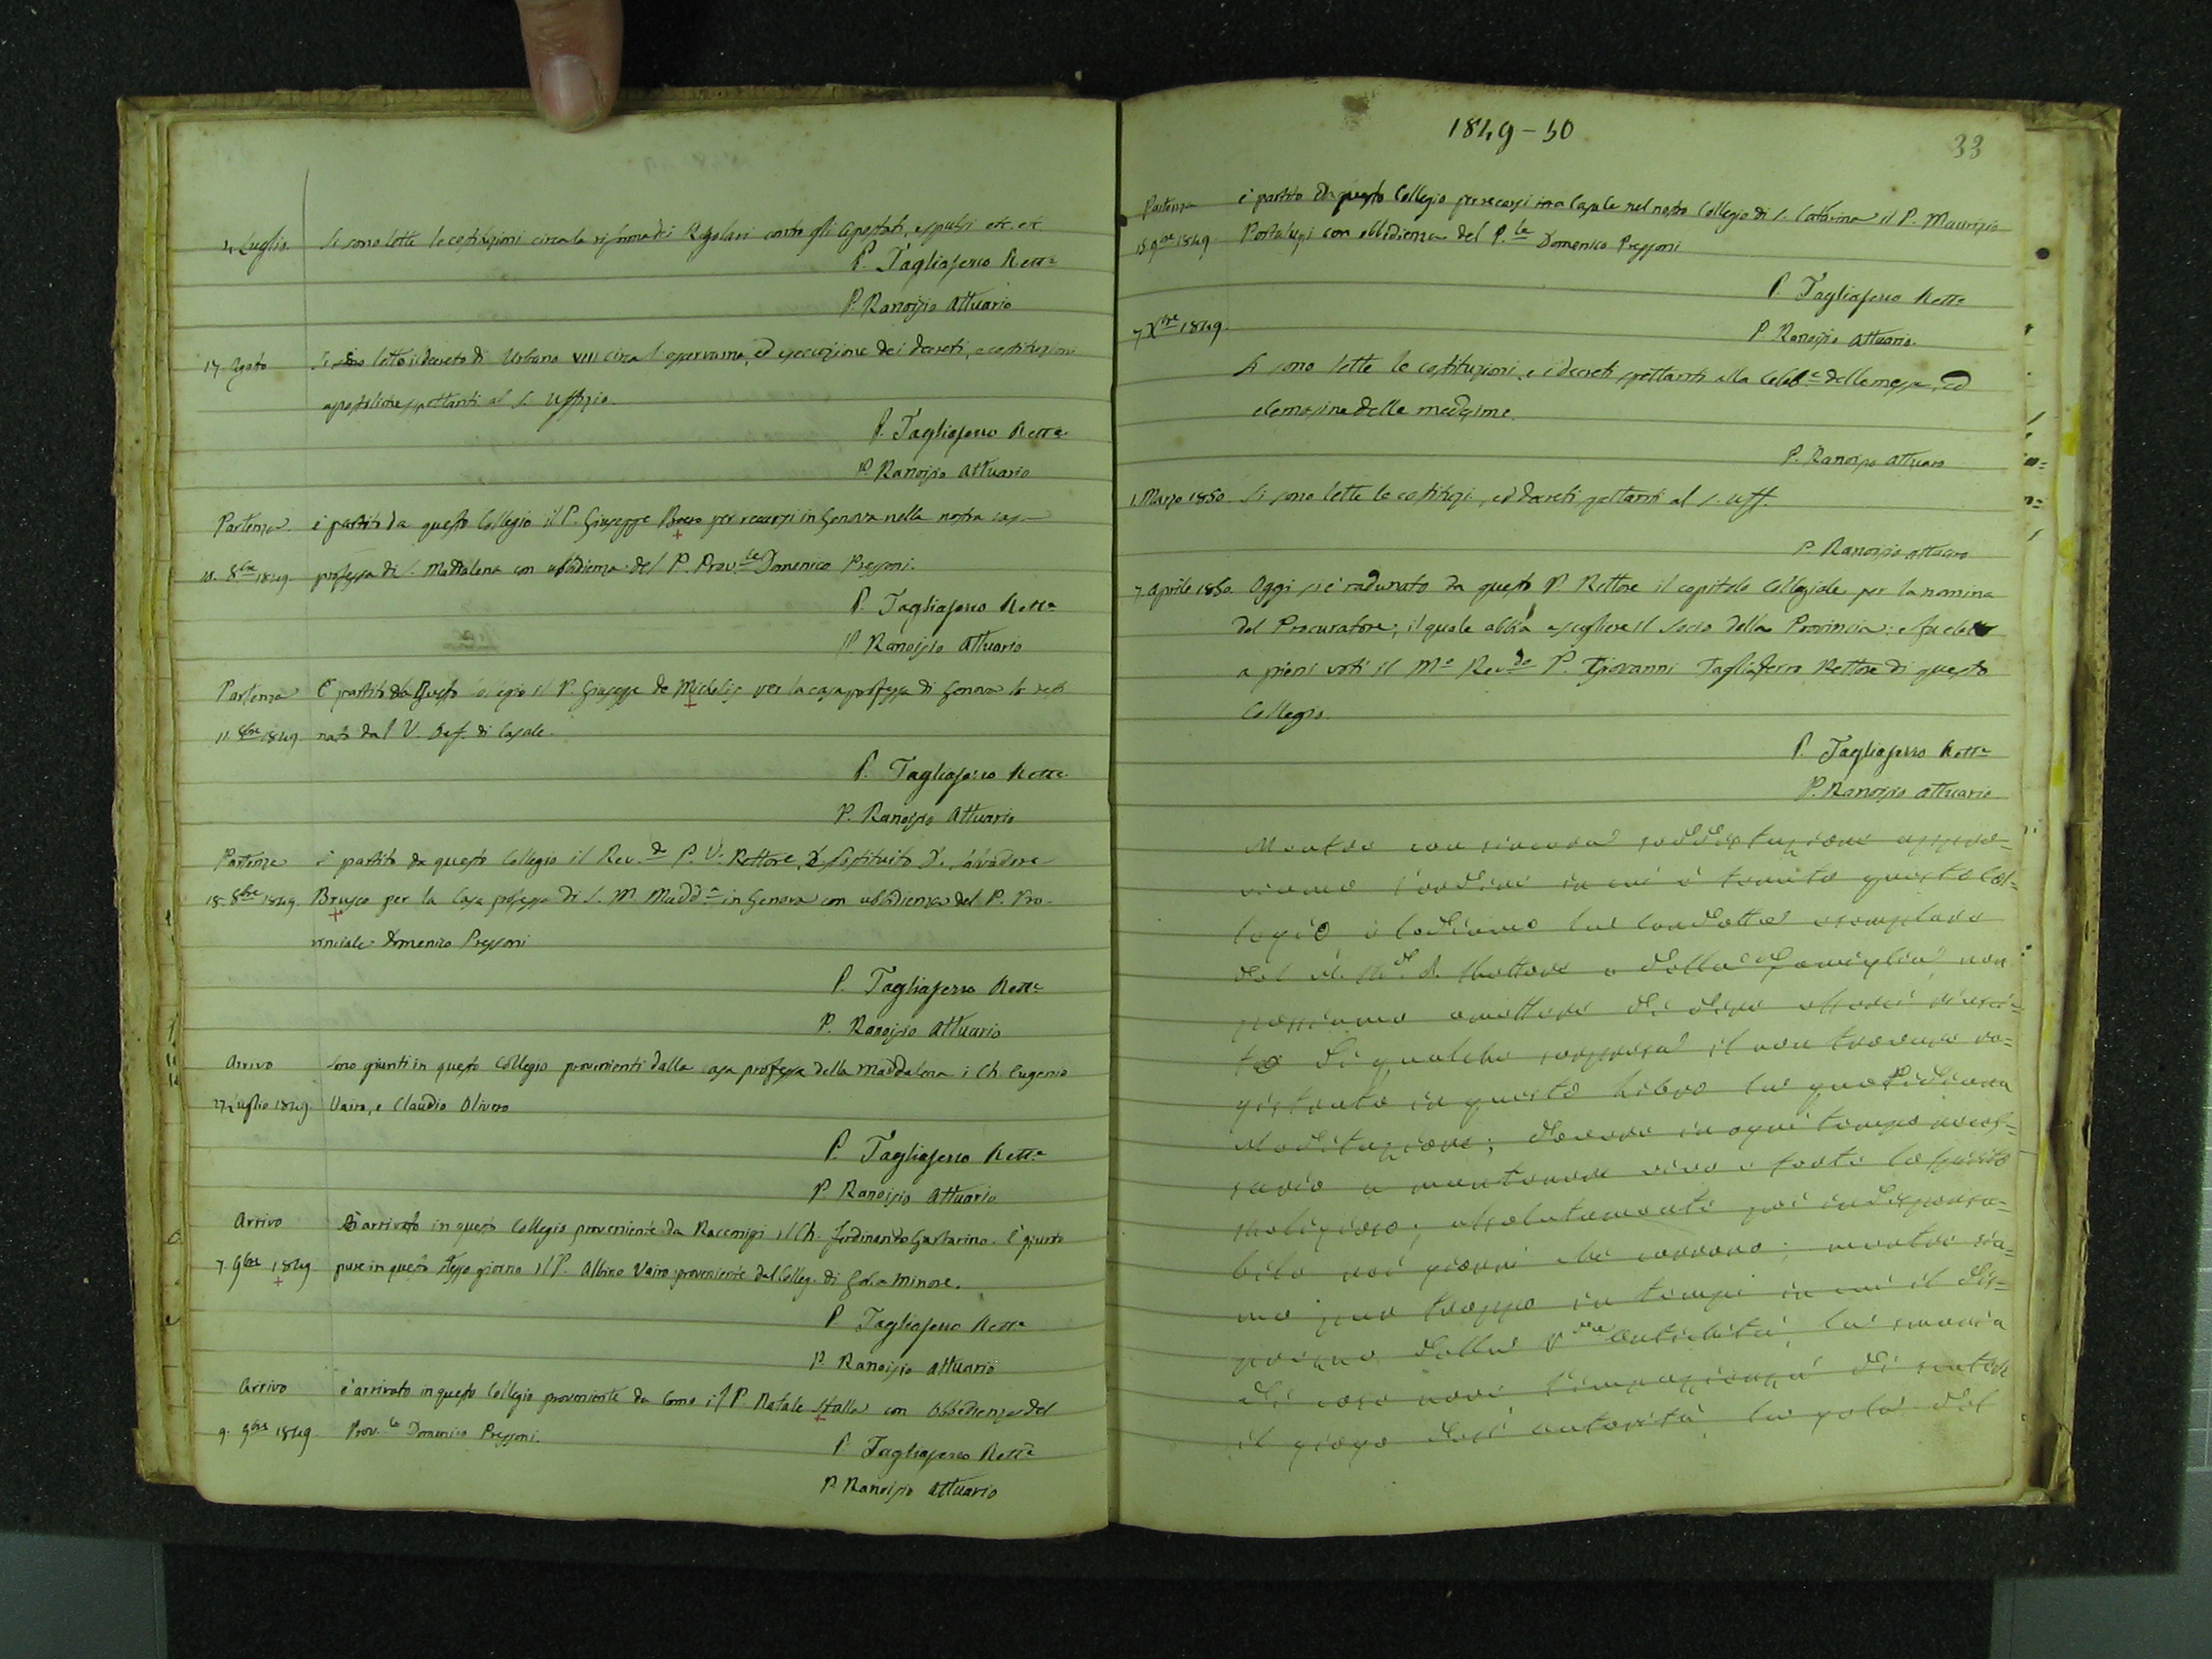 4. Luglio. Si sono lette le costituzioni circa la riforma dei Regolari contro gli Apostati, espulsi etc. etc
P. Tagliaferro Rett.e
P. Ranoisio Attuario
17. Agosto Si sono letto il decreto di Urbano VIII circa l'osservanza, ed esecuzione dei decreti, e costituzioni
apostoliche spettanti al S. Uffizio.
P. Tagliaferro Rett.e
P. Ranoisio Attuario
Partenza. è partito da questo Collegio il P. Giuseppe per recarsi in Genova nella nostra casa
10. 8bre 1849. professa di S. Maddalena con ubbidienza del P. Prov.le Domenico Pressoni.
P. Tagliaferro Rett.e
P. Ranoisio Attuario
Partenza È partito da questo Collegio il P. Giuseppe de Michelis per la casa professa di Genova
11. 8bre 1849. nato dal V. Def. di Casale.
P. Tagliaferro Rett.e
P. Ranoisio Attuario
Partenza è partito da questo Collegio il Rev.do P. V. Rettore, Sostituito D.
18. 8bre 1849. Brusco per la Casa professa di S. M. Madd.a in Genova con ubbidienza del P. Pro-
vinciale Domenico Pressoni
P. Tagliaferro Rett.e
P. Ranoisio Attuario
Arrivo Sono giunti in questo Collegio provenienti dalla casa professa della Maddalena i Ch. Eugenio
27 Luglio 1849. Vairo, e Claudio Olivero
P. Tagliaferro Rett.e
P. Ranoisio Attuario
Arrivo È arrivato in questo Collegio proveniente da Racconigi il Ch. Ferdinando Gastarino. È giunto
7. 9bre 1849 pure in questo stesso giorno il P. Albino Vairo proveniente dal Colleg. di minore.
P. Tagliaferro Rett.e
P. Ranoisio Attuario
Arrivo è arrivato in questo Collegio proveniente da Como il P. Natale Stalla con Obbedienza del
9. 9bre 1849 Prov.le Domenico Pressoni.
P. Tagliaferro Rett.e
P. Ranoisio Attuario
1849-50
33
Partenza è partito da questo Collegio per recarsi in a Casale nel nostro Collegio di S. Catterina il P. Maurizio
15 9bre 1849 Portalupi con obbidienza del P.le Domenico Pressoni
P. Tagliaferro Rett.e
P. Ranoisio Attuario.
7 Xbre 1849.
Si sono lette le costituzioni, e i decreti spettanti alla Celeb.e delle messe, ed
elemosina delle medesime.
P. Ranoisio Attuario
1. Marzo 1850 Si sono lette le costituzi, ed decreti spettanti al S. Uff.
P. Ranoisio Attuario
7. Aprile 1850. Oggi si è radunato da questo P. Rettore il capitolo Collegiale per la nomina
del Procuratore, il quale abbia a scegliere il Socio della Provincia: e fu eletto
a pieni voti il M.o Rev.do P. Giovanni Tagliaferro Rettore di questo
Collegio.
P. Tagliaferro Rett.e
P. Ranoisio Attuario
Mentre con sincera soddisfazione appro=
viamo l'ordine in cui è tenuto questo Col=
legio e lodiamo la condotta esemplare
del M. R.do P. Rettore e della Famiglia non
possiamo omettere di dire esserci riusci=
to di qualche sorpresa il non trovare re=
gistrata in questo Libro la quotidiana
Meditazione; dovere in ogni tempo neces=
sario a mantenere vivo e forte lo spirito
religioso; assolutamente poi indispensa=
bile nei giorni che corrono; mentre sia=
mo pur troppo in tempi in cui il dis=
prezzo della antichità, la smania
di cose nuove l'impazienza di scuotere
il giogo dell'autorità la gola del